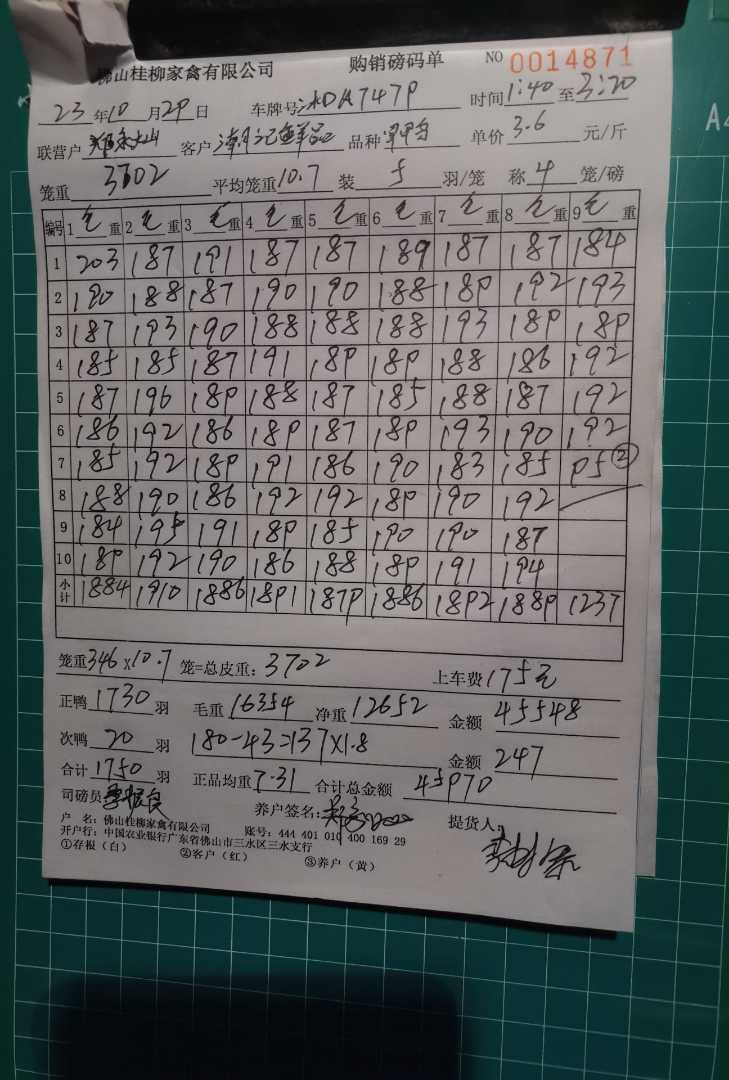 佛山桂柳家禽有限公司 购销磅码单 NO 0014871
23 年 10 月 29 日 车牌号 A7479 时间 1:40 至 3:20
联营户 客户 品种 单价 3.6 元/斤
笼重 3702 平均笼重 10.7 装 5 羽/笼 称 4 笼/磅
编号 1 毛 重 2 毛 重 3 毛 重 4 毛 重 5 毛 重 6 毛 重 7 毛 重 8 毛 重 9 毛 重
1 203 187 191 187 187 189 187 187 184
2 190 188 187 190 190 188 189 192 193
3 187 193 190 188 188 188 193 189 189
4 185 185 187 191 189 189 188 186 192
5 187 196 189 188 187 185 188 187 192
6 186 192 186 189 187 189 193 190 192
7 185 192 189 191 186 190 183 185 95②
8 188 190 186 192 192 189 190 192
9 184 195 191 189 185 190 190 187
10 189 192 190 186 188 189 191 194
小计 1884 1910 1886 1891 1879 1886 1892 1889 1237
笼重 346 x 10.7 笼=总皮重: 3702 上车费 175元
正鸭 1730 羽 毛重 16354 净重 12652 金额 45548
次鸭 20 羽 180-43=137x1.8 金额 247
合计 1750 羽 正品均重 7.31 合计总金额 45970
司磅员 养户签名: 提货人:
户 名: 佛山桂柳家禽有限公司 账号: 444 401 010 400 169 29
开户行: 中国农业银行广东省佛山市三水区三水支行
①存根（白） ②客户（红） ③养户（黄）
A4